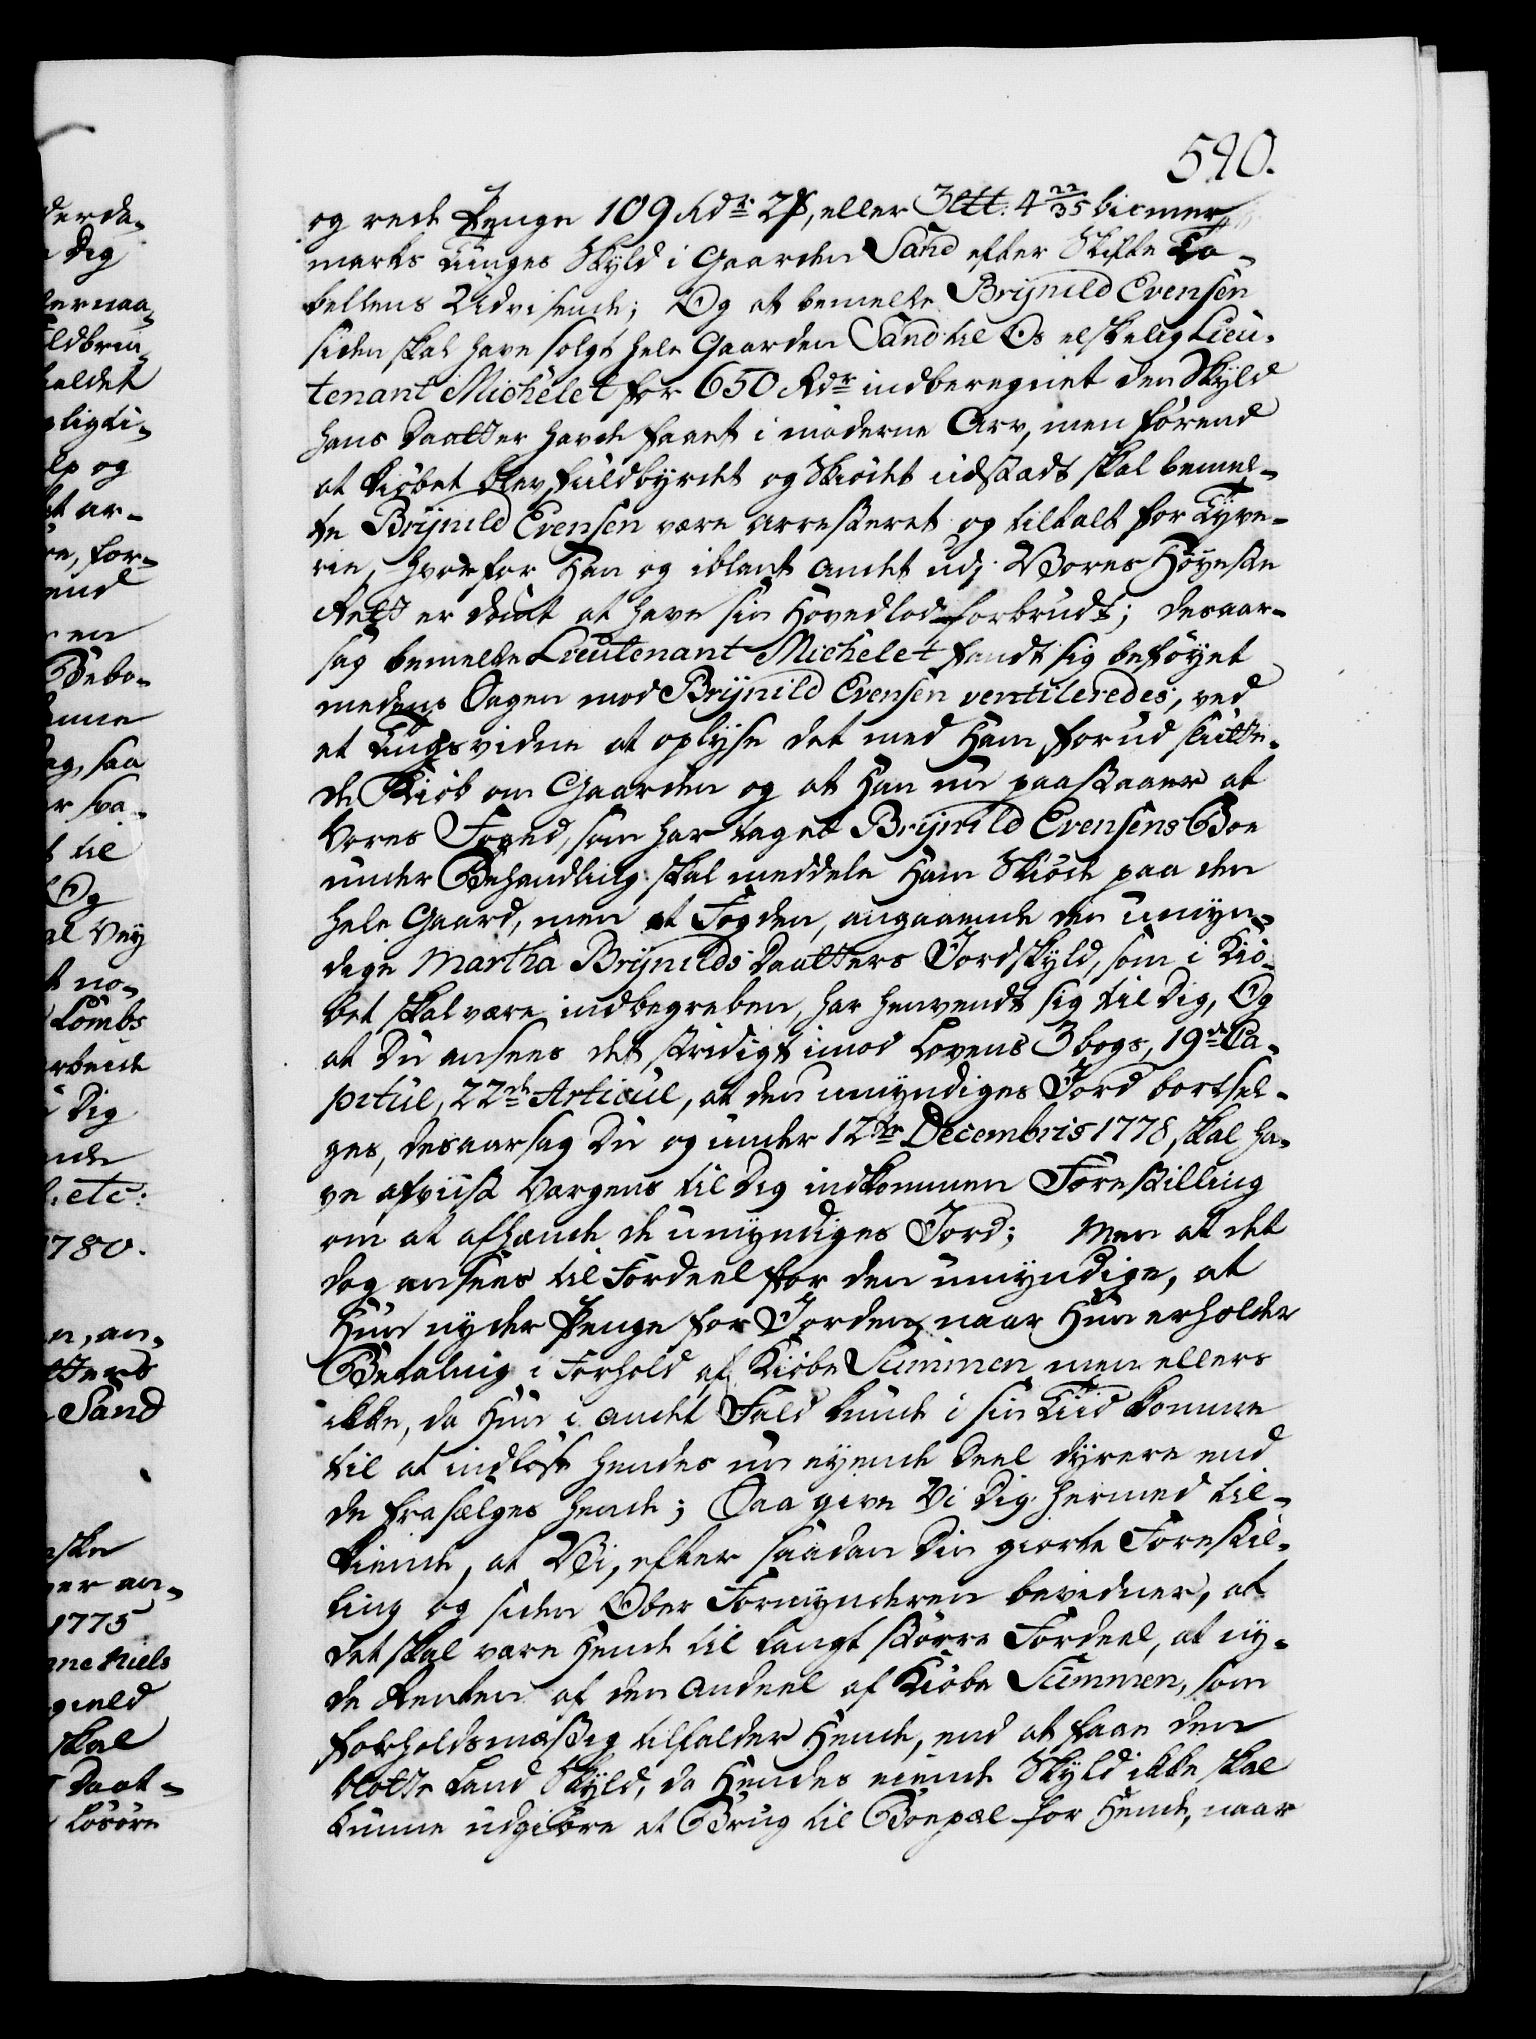 590.
og rede Penge 109 Rdr 2ß, eller 3 ett: 4 22/35 bismer
marks Tunges Skyld i Gaarden Sand efter Skifte Ta-
bellens Udvisende; Og at bemelte Brÿnild Evensen
siden skal have solgt hele Gaarden Sand til Os elskelig Lieu-
tenant Michelet for 650 Rdr indberegnet den Skyld
hans Daatter havde faaet i møderne Arv, men førend
at Kiøbet blev fuldbyrdet og Skiødet udstædt skal bemel-
te Brÿnild Evensen være arresteret og tiltalt for Tyve-
rie, hvorfor Han og iblant andet udj Vores Høÿeste
Rett er dømt at have sin Hovedlod forbrudt; desaar-
sag bemelte Lieutenant Michelet fandt sig beføÿet
medens Sagen mod Brÿnild Evensen ventileredes, ved
et Tingsvidne at oplyse det med Ham forud slutte-
de Kiøb om Gaarden og at Han nu paastaaer at
Vores Foged, som har taget Brÿnild Evensens Boe
under Behandling skal meddele Ham Skiøde paa den
hele Gaard, men at Fogden, angaaende den umÿn-
dige Martha Brÿnilds Daatters Jordskyld, som i Kiø-
bet skal være indbegreben, har henvendt sig til Dig, Og
at Du ansees det stridigt imod Lovens 3 bogs, 19de Ca-
pitul, 22de Articul, at den umÿndiges Jord bortsæl-
ges, desaarsag Du og under 12te Decembris 1778, skal ha-
ve afviist Vargens til Dig indkommen Forestilling
om at afhænde de umÿndiges Jord; Men at det
dog ansees til Fordeel for den umÿndige, at
Hun nyder Penge for Jorden, naar Hun erholder
Betaling i Forhold af Kiøbe Summen men ellers
ikke, da Hun i andet Fald kunde i sin Tiid komme
til at indløse hendes nu eÿende Deel dyrere end
de frasælges hende; Saa give Vi Dig hermed til-
kiende, at Vi, efter saadan Din giorte Forestil-
ling og siden Ober Formynderen bevidner, at
det skal være Hende til langt større Fordeel, at ny-
de Renten af den Andeel af Kiøbe Summen, som
forholdsmæssig tilfalder Hende, end at faae den
blotte Land Skyld, da Hendes eiende Skyld ikke skal
kunne udgiøre et Brug til Boepæl for Hende, naar